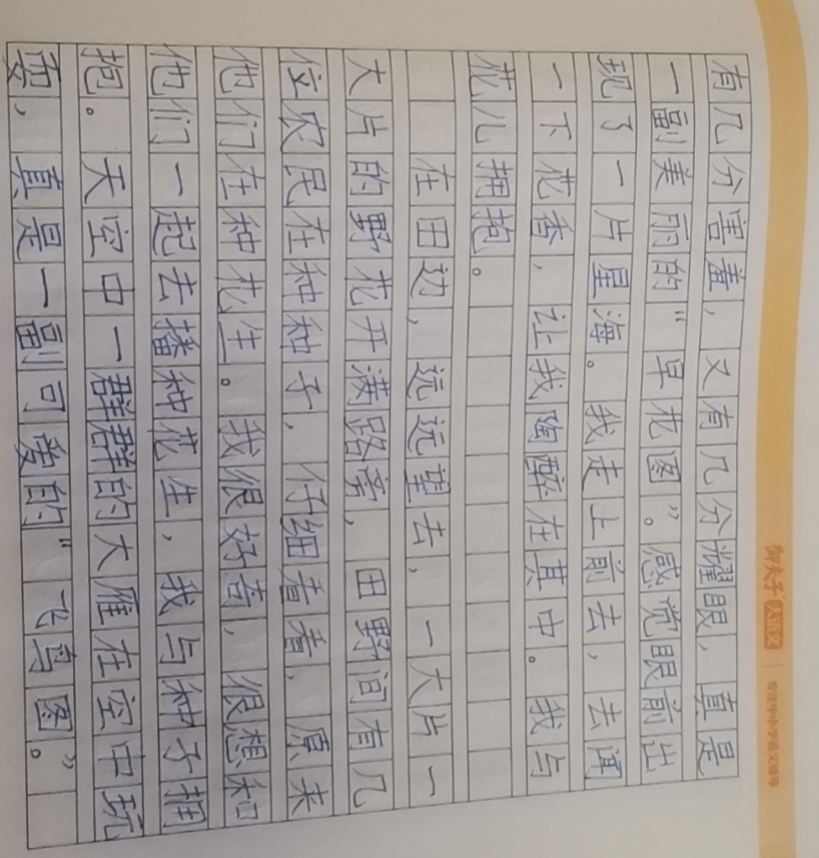 御夫子 大语文 | 专注中小学语文辅导
有几分害羞，又有几分耀眼，真是
一副美丽的“早花图”。感觉眼前出
现了一片星海。我走上前去，去闻
一下花香，让我陶醉在其中。我与
花儿拥抱。
在田边，远远望去，一大片一
大片的野花开满路旁，田野间有几
位农民在种种子，仔细看看，原来
他们在种花生。我很好奇，很想和
他们一起去播种花生，我与种子拥
抱。天空中一群群的大雁在空中玩
耍，真是一副可爱的“飞鸟图。”